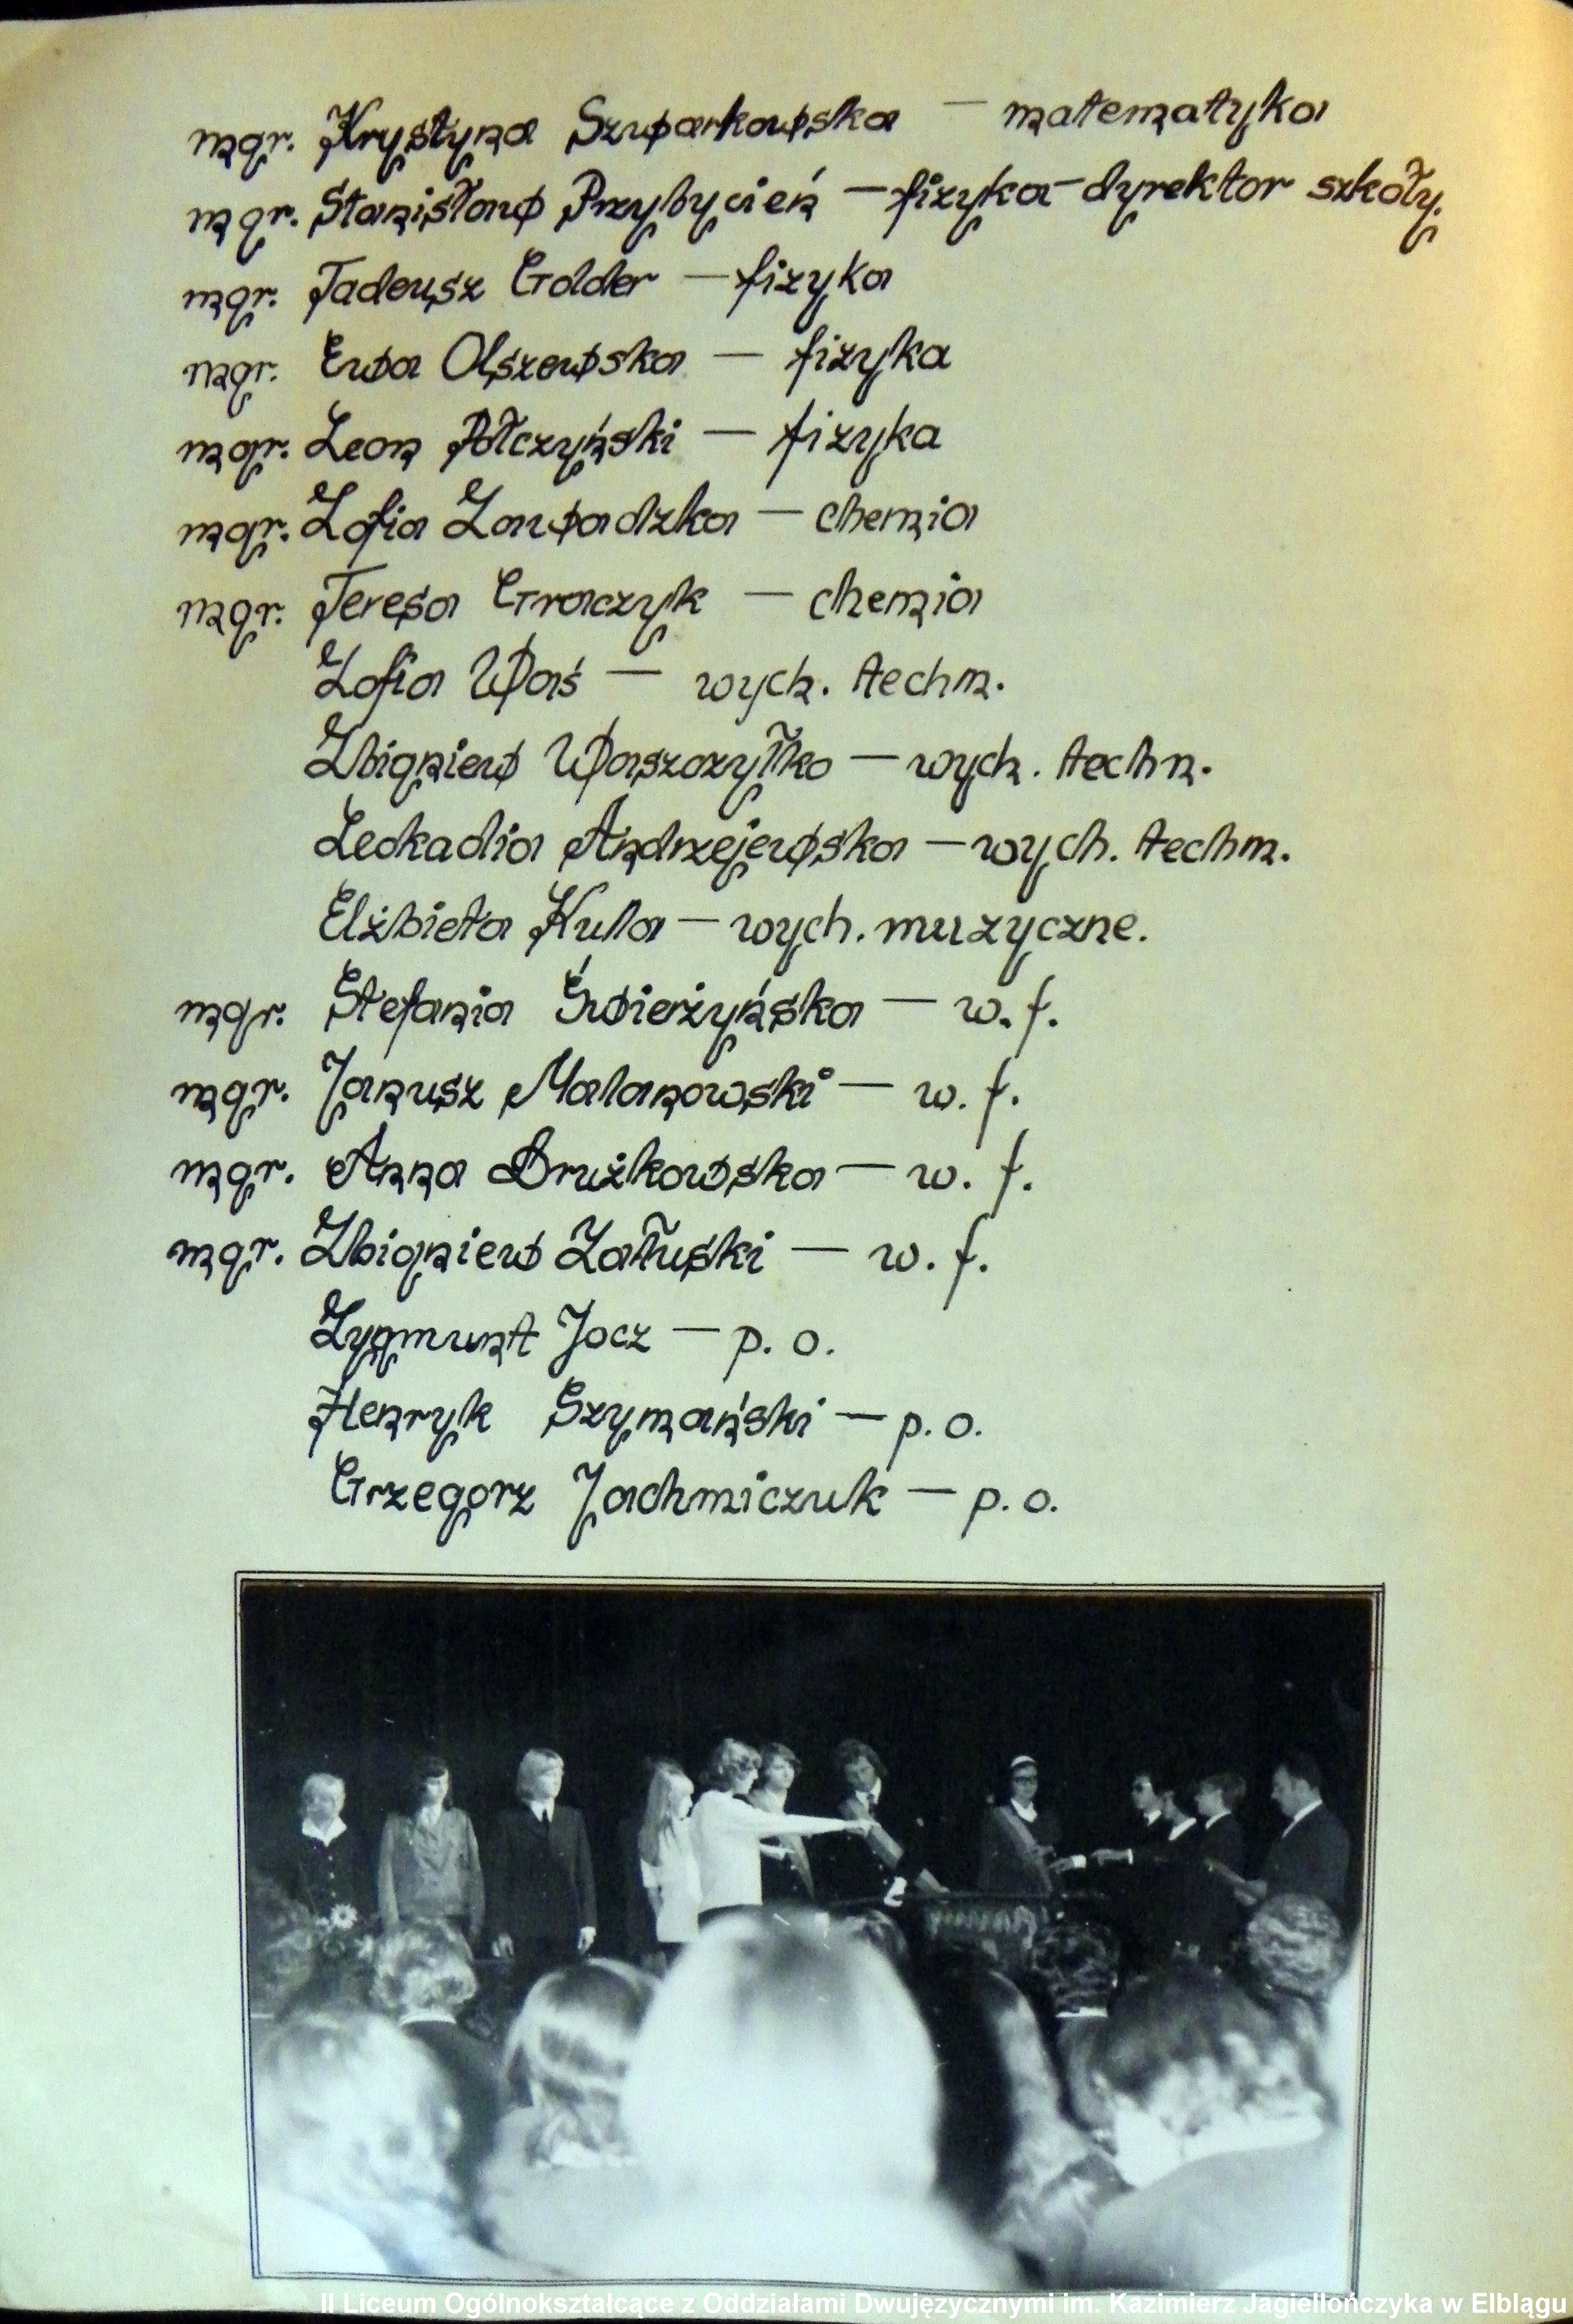 mgr. Krystyna Szwarkowska — matematyka
mgr. Stanisław Przybycień — fizyka - dyrektor szkoły.
mgr. Tadeusz Golder — fizyka
mgr. Ewa Olszewska — fizyka
mgr. Leon Połczyński — fizyka
mgr. Zofia Zawadzka — chemia
mgr. Teresa Graczyk — chemia
Zofia Waś — wych. techn.
Zbigniew Waszczyłko — wych. techn.
Leokadia Andrzejewska — wych. techn.
Elżbieta Kulla — wych. muzyczne.
mgr. Stefania Świerżyńska — w. f.
mgr. Janusz Malanowski — w. f.
mgr. Anna Drużkowska — w. f.
mgr. Zbigniew Załuski — w. f.
Zygmunt Jocz — p. o.
Henryk Szymański — p. o.
Grzegorz Jachmiczuk — p. o.
II Liceum Ogólnokształcące z Oddziałami Dwujęzycznymi im. Kazimierz Jagiellończyka w Elblągu